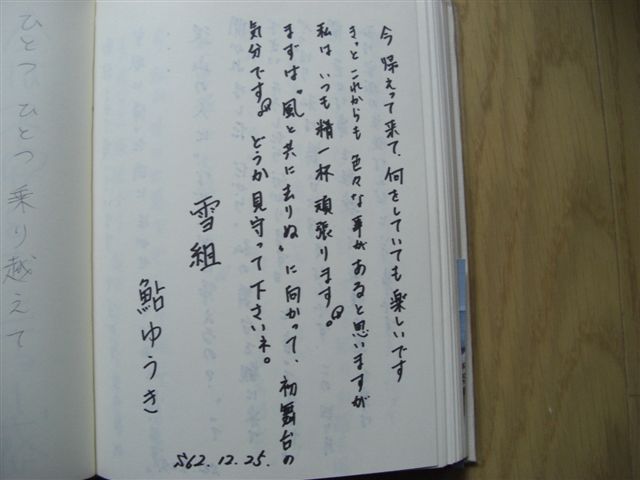 今 帰って来て、何をしていても楽しいです
きっと これからも 色々な事があると思いますが
私は いつも 精一杯 頑張ります。
まずは、“風と共に去りぬ” に向かって、初舞台の
気分です。 どうか 見守って下さいネ。
雪組
鮎ゆうき
S62.12.25.
ひとつ ひとつ 乗り越えて